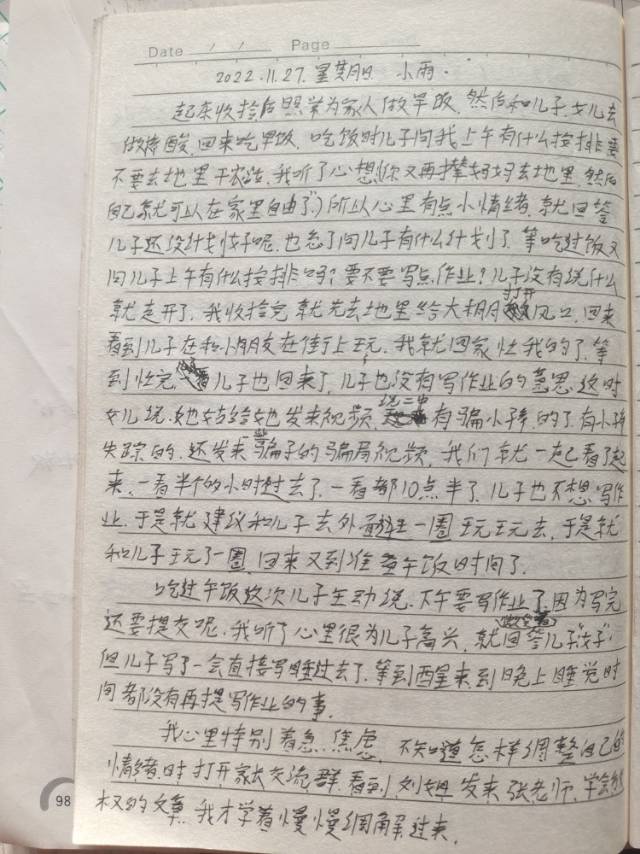 Date / / Page
2022.11.27. 星期日 小雨.
起床收拾后照常为家人做早饭,然后和儿子,女儿去
做核酸,回来吃早饭,吃饭时儿子问我上午有什么按排要
不要去地里干农活,我听了心想(你又再撵妈妈去地里,然后
自己就可以在家里自由了)所以心里有点小情绪,就回答
儿子还没计划好呢,也忘了问儿子有什么计划了,等吃过饭又
问儿子上午有什么按排吗?要不要写点作业?儿子没有说什么
就走开了,我收拾完就先去地里给大棚打开风口,回来
看到儿子在和小朋友在街上玩,我就回家忙我的了,等
到忙完儿子也回来了,儿子也没有写作业的意思,这时
女儿说,她姑给她发来视频,说二中有骗小孩的了,有小孩
失踪的,还发来些骗子的骗局视频,我们就一起看了起
来,一看半个的小时过去了,一看都10点半了,儿子也不想写作
业,于是就建议和儿子去外面转一圈玩玩去,于是就
和儿子玩了一圈,回来又到准备午饭时间了.
吃过午饭这次儿子主动说,下午要写作业了,因为写完
还要提交呢,我听了心里很为儿子高兴,就回答儿子"好",
但儿子写了一会直接写睡过去了,等到醒来到晚上睡觉时
间都没有再提写作业的事.
我心里特别着急,焦虑,不知道怎样调整自己的
情绪时,打开家长交流群,看到,刘姐发来张老师,学会
权的文章,我才学着慢慢调解过来.
98